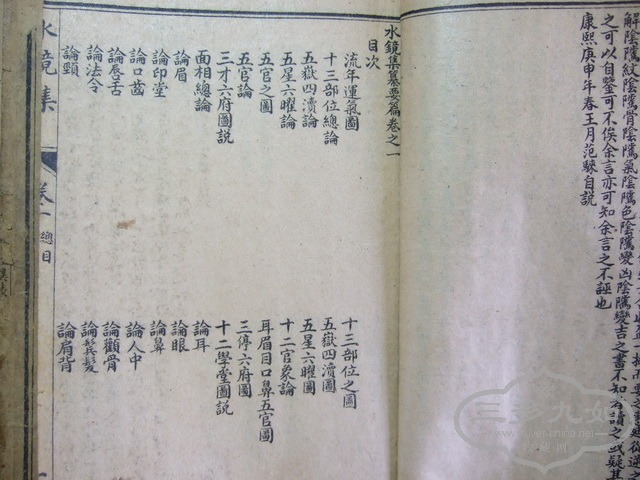 解陰隲紋陰隲骨陰隲氣陰隲色陰隲變凶陰隲變吉之書不知者讀之或疑其
之可以自鑒可不俟余言亦可知余言之不誣也
康熙庚申年春王月范騋自説
水鏡集纂要篇卷之一
目次
流年運氣圖 十三部位之圖
十三部位總論 五嶽四瀆圖
五嶽四瀆論 五星六曜圖
五星六曜論 十二官象論
五官之圖 耳眉目口鼻五官圖
五官論 三停六府圖
三才六府圖説 十二學堂圖説
面相總論 論耳
論眉 論眼
論印堂 論鼻
論口齒 論人中
論唇舌 論顴骨
論法令 論鬢髮
論頸 論肩背
水鏡集 卷一 總目
三多九如